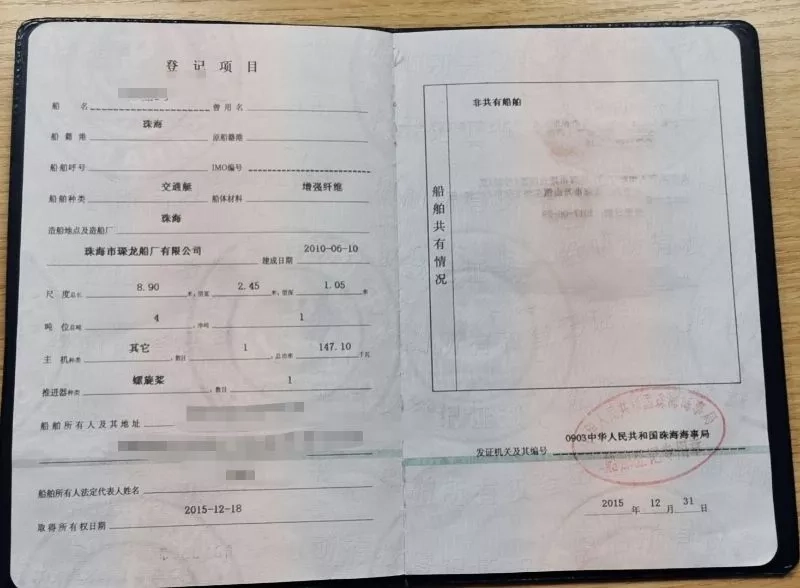 登记项目
船名 曾用名
珠海
船籍港 原船籍港
船舶呼号 IMO编号
交通艇 增强纤维
船舶种类 船体材料
珠海
造船地点及造船厂
珠海市琛龙船厂有限公司 建成日期 2010-06-10
尺度总长 8.90 米,型宽 2.45 米,型深 1.05 米
吨位总吨 4 ,净吨 1
主机种类 其它 ,数目 1 ,总功率 147.10 千瓦
推进器种类 螺旋桨 ,数目 1
船舶所有人及其地址
船舶所有人法定代表人姓名
2015-12-18
取得所有权日期
船舶共有情况
非共有船舶
0903中华人民共和国珠海海事局
发证机关及其编号
2015年12月31日